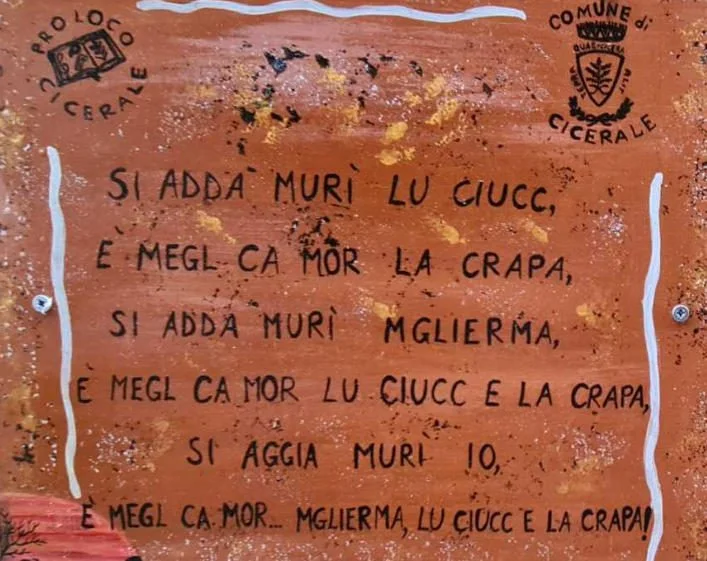 PRO LOCO
CICERALE
COMUNE di
CICERALE
SI ADDA' MURÌ LU CIUCC,
È MEGL CA MOR LA CRAPA,
SI ADDA MURÌ MGLIERMA,
È MEGL CA MOR LU CIUCC E LA CRAPA,
SI AGGIA MURI IO,
È MEGL CA MOR... MGLIERMA, LU CIUCC E LA CRAPA!